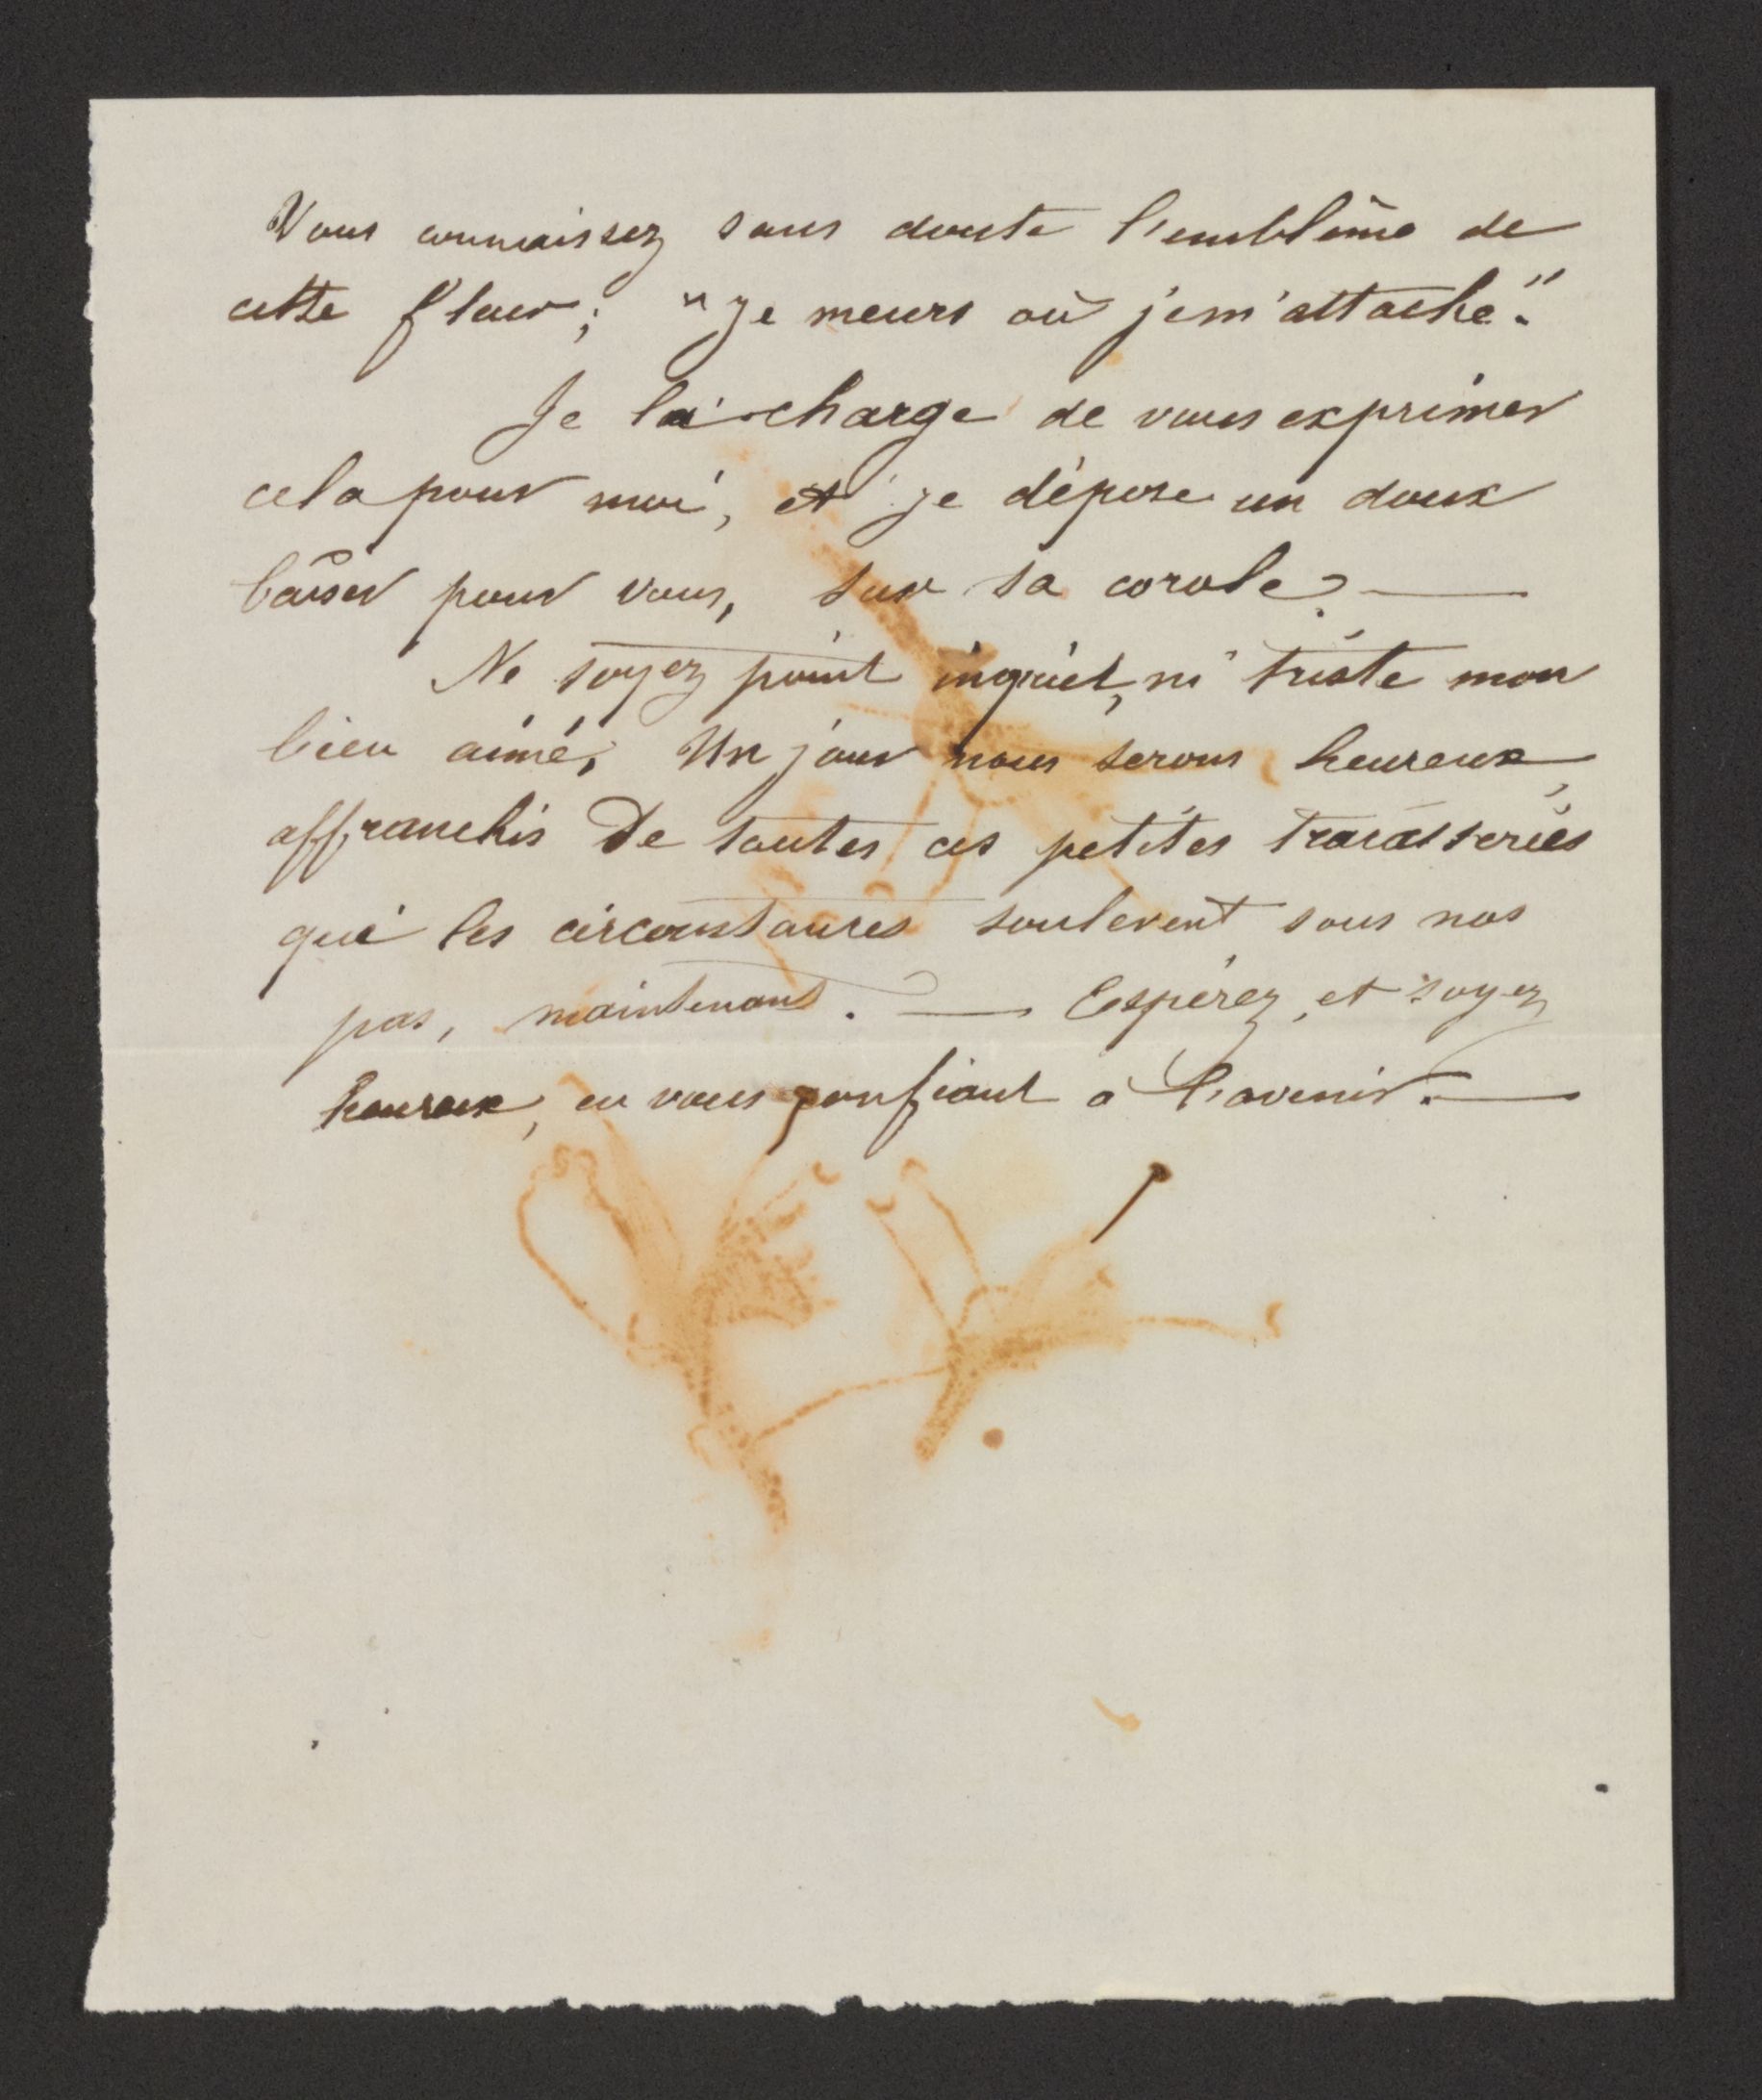 Vous connaissez sans doute l'emblême de
cette fleur; "Je meurs où je m'attache".
Je la charge de vous exprimer
cela pour moi, et je dépose un doux
baiser pour vous, sur sa corole. —
Ne soyez point inquiet, ni triste mon
bien aimé, Un jour nous serons heureux,
affranchis De toutes ces petites tracasseries
que les circonstances soulevent sous nos
pas, maintenant. — Espérez, et soyez
heureux, en vous confiant à l'avenir. —